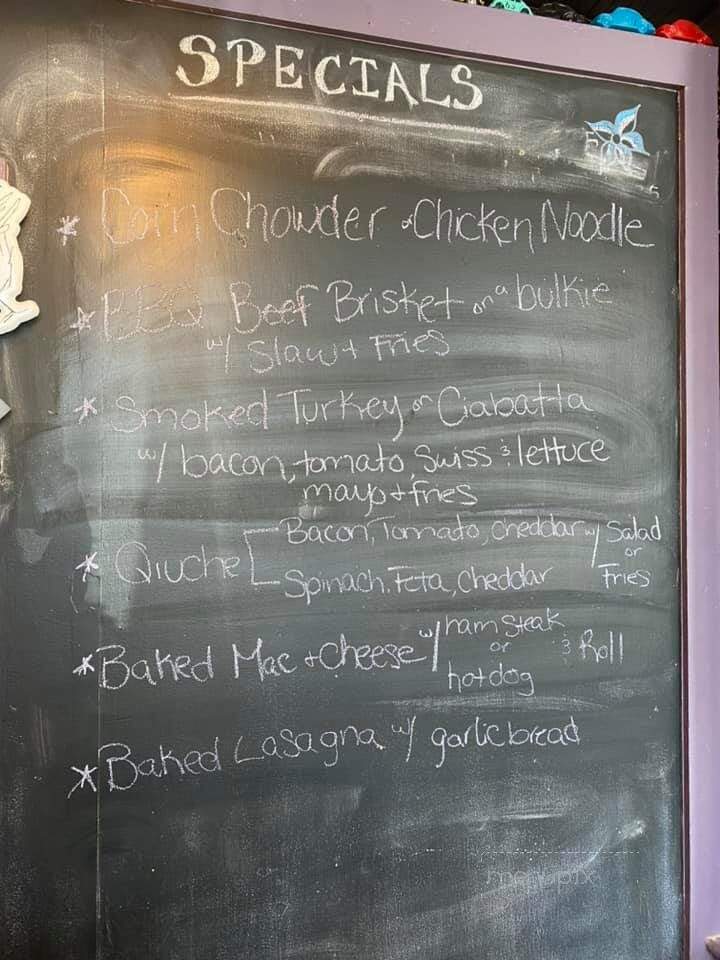 SPECIALS
* Corn Chowder or Chicken Noodle
* BBQ Beef Brisket on a bulkie
w/ Slaw + Fries
* Smoked Turkey on Ciabatta
w/ bacon, tomato, Swiss & lettuce
mayo + fries
* Qiuche Bacon, Tomato, cheddar w/ Salad
or
Spinach, Feta, cheddar Fries
* Baked Mac + Cheese w/ ham steak
or & Roll
hotdog
* Baked Lasagna w/ garlic bread
menupix